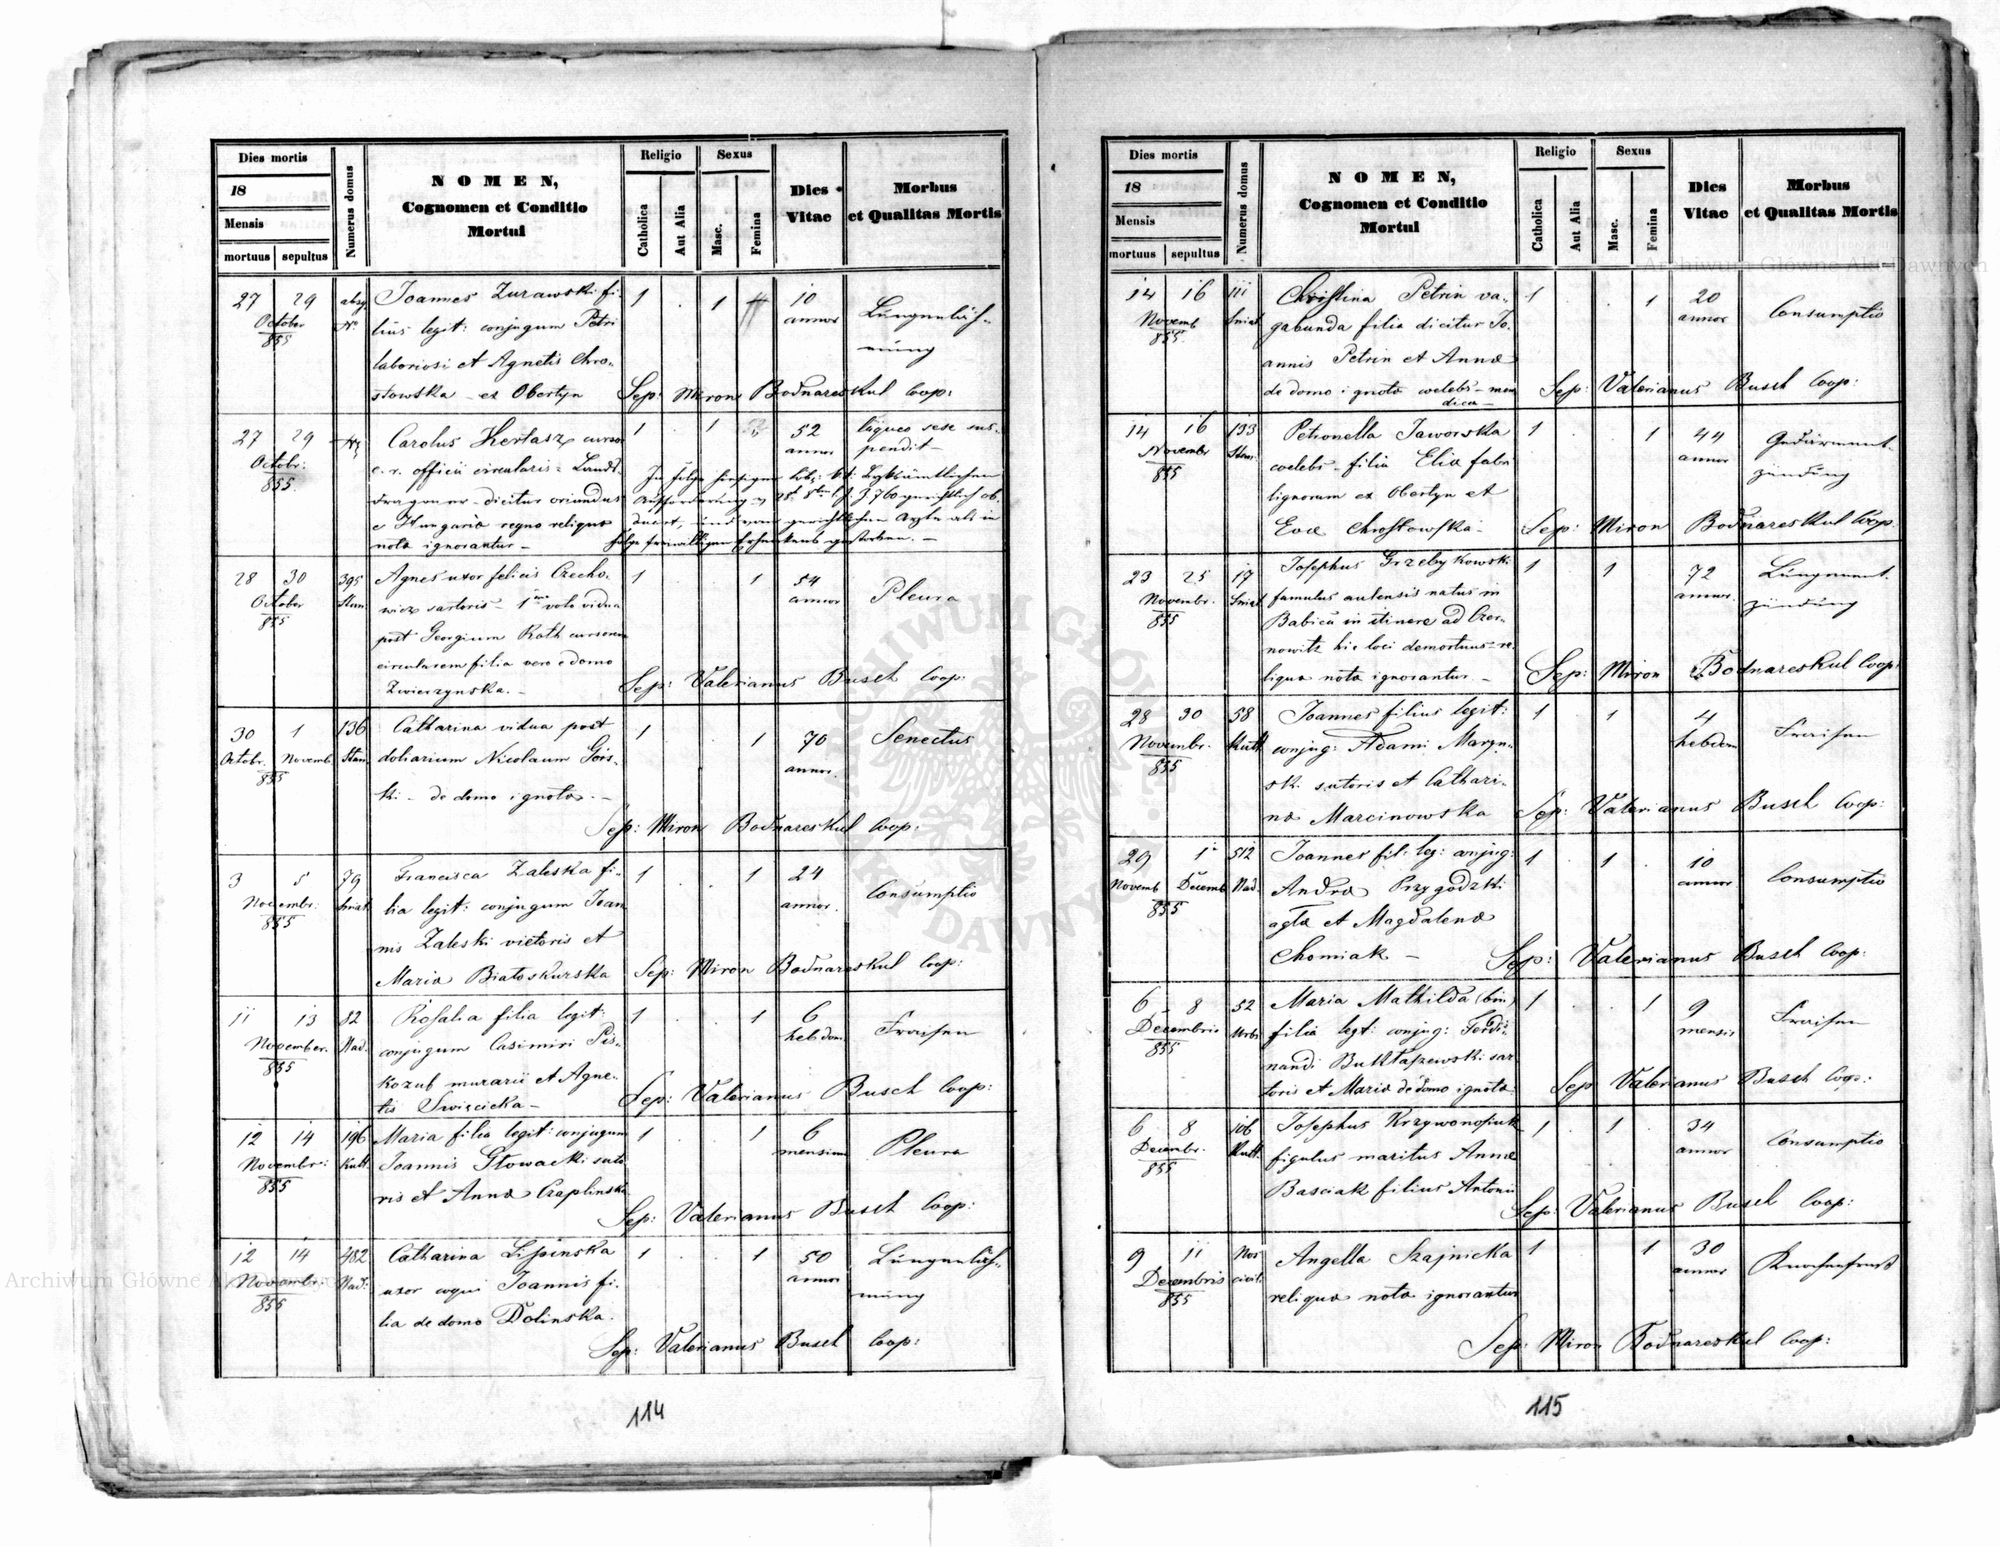 Dies mortis
Numerus domus
NOMEN,
Cognomen et Conditio
Mortui
Religio
Sexus
Dies
Vitae
Morbus
et Qualitas Mortis
18
Mensis
mortuus sepultus
Catholica
Aut Alia
Masc.
Femina
27 29 absq Joannes Zurawski fi- 1 . 1 10
October No lius legit: conjugum Petri annor
855 laboriosi et Agnetis Chro-
stowska - ex Obertyn Sep: Miron Bodnareskul Coop:
27 29 Carolus Hertasz cursor 1 . 1 52 laqueo sese sus-
Octobr: c. r. officii circularis - annor pendit -
855 dragoner - dicitur oriundus
e Hungaria regno reliqua
nota ignorantur -
28 30 395 Agnes uxor felicis Czecho- 1 . . 1 54 Pleura
October Stan. wicz sartoris - 1mo voto vidua annor
855 post Georgium Rath cursorem
circularem filia vero e domo
Zwierzynska. - Sep: Valerianus Busch Coop:
30 1 136 Catharina vidua post 1 . . 1 70 Senectus
Octobr. Novemb. Stan. doliarium Nicolaum Gors- annor.
855 ki - de domo ignota. -
Sep: Miron Bodnareskul Coop:
3 5 79 Francisca Zaleska fi- 1 . . 1 24 Consumptio
Novembr: Sniat. lia legit: conjugum Joan annor.
855 nis Zaleski vietoris et
Maria Białoskurska Sep: Miron Bodnareskul Coop:
11 13 82 Rosalia filia legit: 1 . . 1 6 Fraisen
November. Nad. conjugum Casimiri Pis- hebdom.
855 kozub murarii et Agne-
tis Swięcicka - Sep: Valerianus Busch Coop:
12 14 196 Maria filia legit: conjugum 1 . . 1 6 Pleura
Novembr: Kutt. Joannis Głowacki suto mensium
855 ris et Anna Czaplinska
Sep: Valerianus Busch Coop:
12 14 482 Catharina Lipinska 1 . . 1 50
Novembr: Nad: uxor coqui Joannis fi- annor
855 lia de domo Dolinska.
Sep: Valerianus Busch Coop:
114
Dies mortis
Numerus domus
NOMEN,
Cognomen et Conditio
Mortui
Religio
Sexus
Dies
Vitae
Morbus
et Qualitas Mortis
18
Mensis
mortuus sepultus
Catholica
Aut Alia
Masc.
Femina
14 16 111 Christina Petrin va- 1 . . 1 20 Consumptio
Novemb Sniat. gabunda filia dicitur Jo- annor
855. annis Petrin et Anna
de domo ignota coelebs - men
dica - Sep: Valerianus Busch Coop:
14 16 133 Petronella Jaworska 1 . . 1 44
November Stan. coelebs - filia Elia fabri annor
855 lignorum ex Obertyn et
Eva Chrostowska - Sep: Miron Bodnareskul Coop.
23 25 17 Josephus Grzebykowski 1 . 1 72
Novembr. Sniat. famulus aulensis natus in annor.
855 Babica in itinere ad Czer-
nowitz hic loci demortuus - re-
liqua nota ignorantur. - Sep: Miron Bodnareskul Coop:
28 30 58 Joannes filius legit: 1 . 1 4 Fraisen
Novembr. Kutt. conjug: Adami Maryn- hebdom
855 sk. sutoris et Cathari-
na Marcinowska Sep: Valerianus Busch Coop:
29 1 512 Joannes fil. leg: conjug: 1 . 1 . 10 Consumptio
Novemb Decemb Nad. Andrea Przygodzki annor
855 agla et Magdalena
Chomiak - Sep: Valerianus Busch Coop:
6 8 52 Maria Mathilda (bin) 1 . . 1 9 Fraisen
Decembris Urbs filia legt: conjug: Ferdi- mensis
855 nandi Bukłaszewski sar
toris et Maria de domo ignota. Sep: Valerianus Busch Coop:
6 8 106 Josephus Krzywonosiuk 1 . 1 . 34 Consumptio
Decembr. Kutt. figulus maritus Anna annor
855 Basciak filius Antonii
Sep: Valerianus Busch Coop:
9 11 Nos Angella Szajnicka 1 . . 1 30
Decembris civil: reliqua nota ignorantur annor
855
Sep: Miron Bodnareskul Coop:
115
Archiwum Główne Akt Dawnych